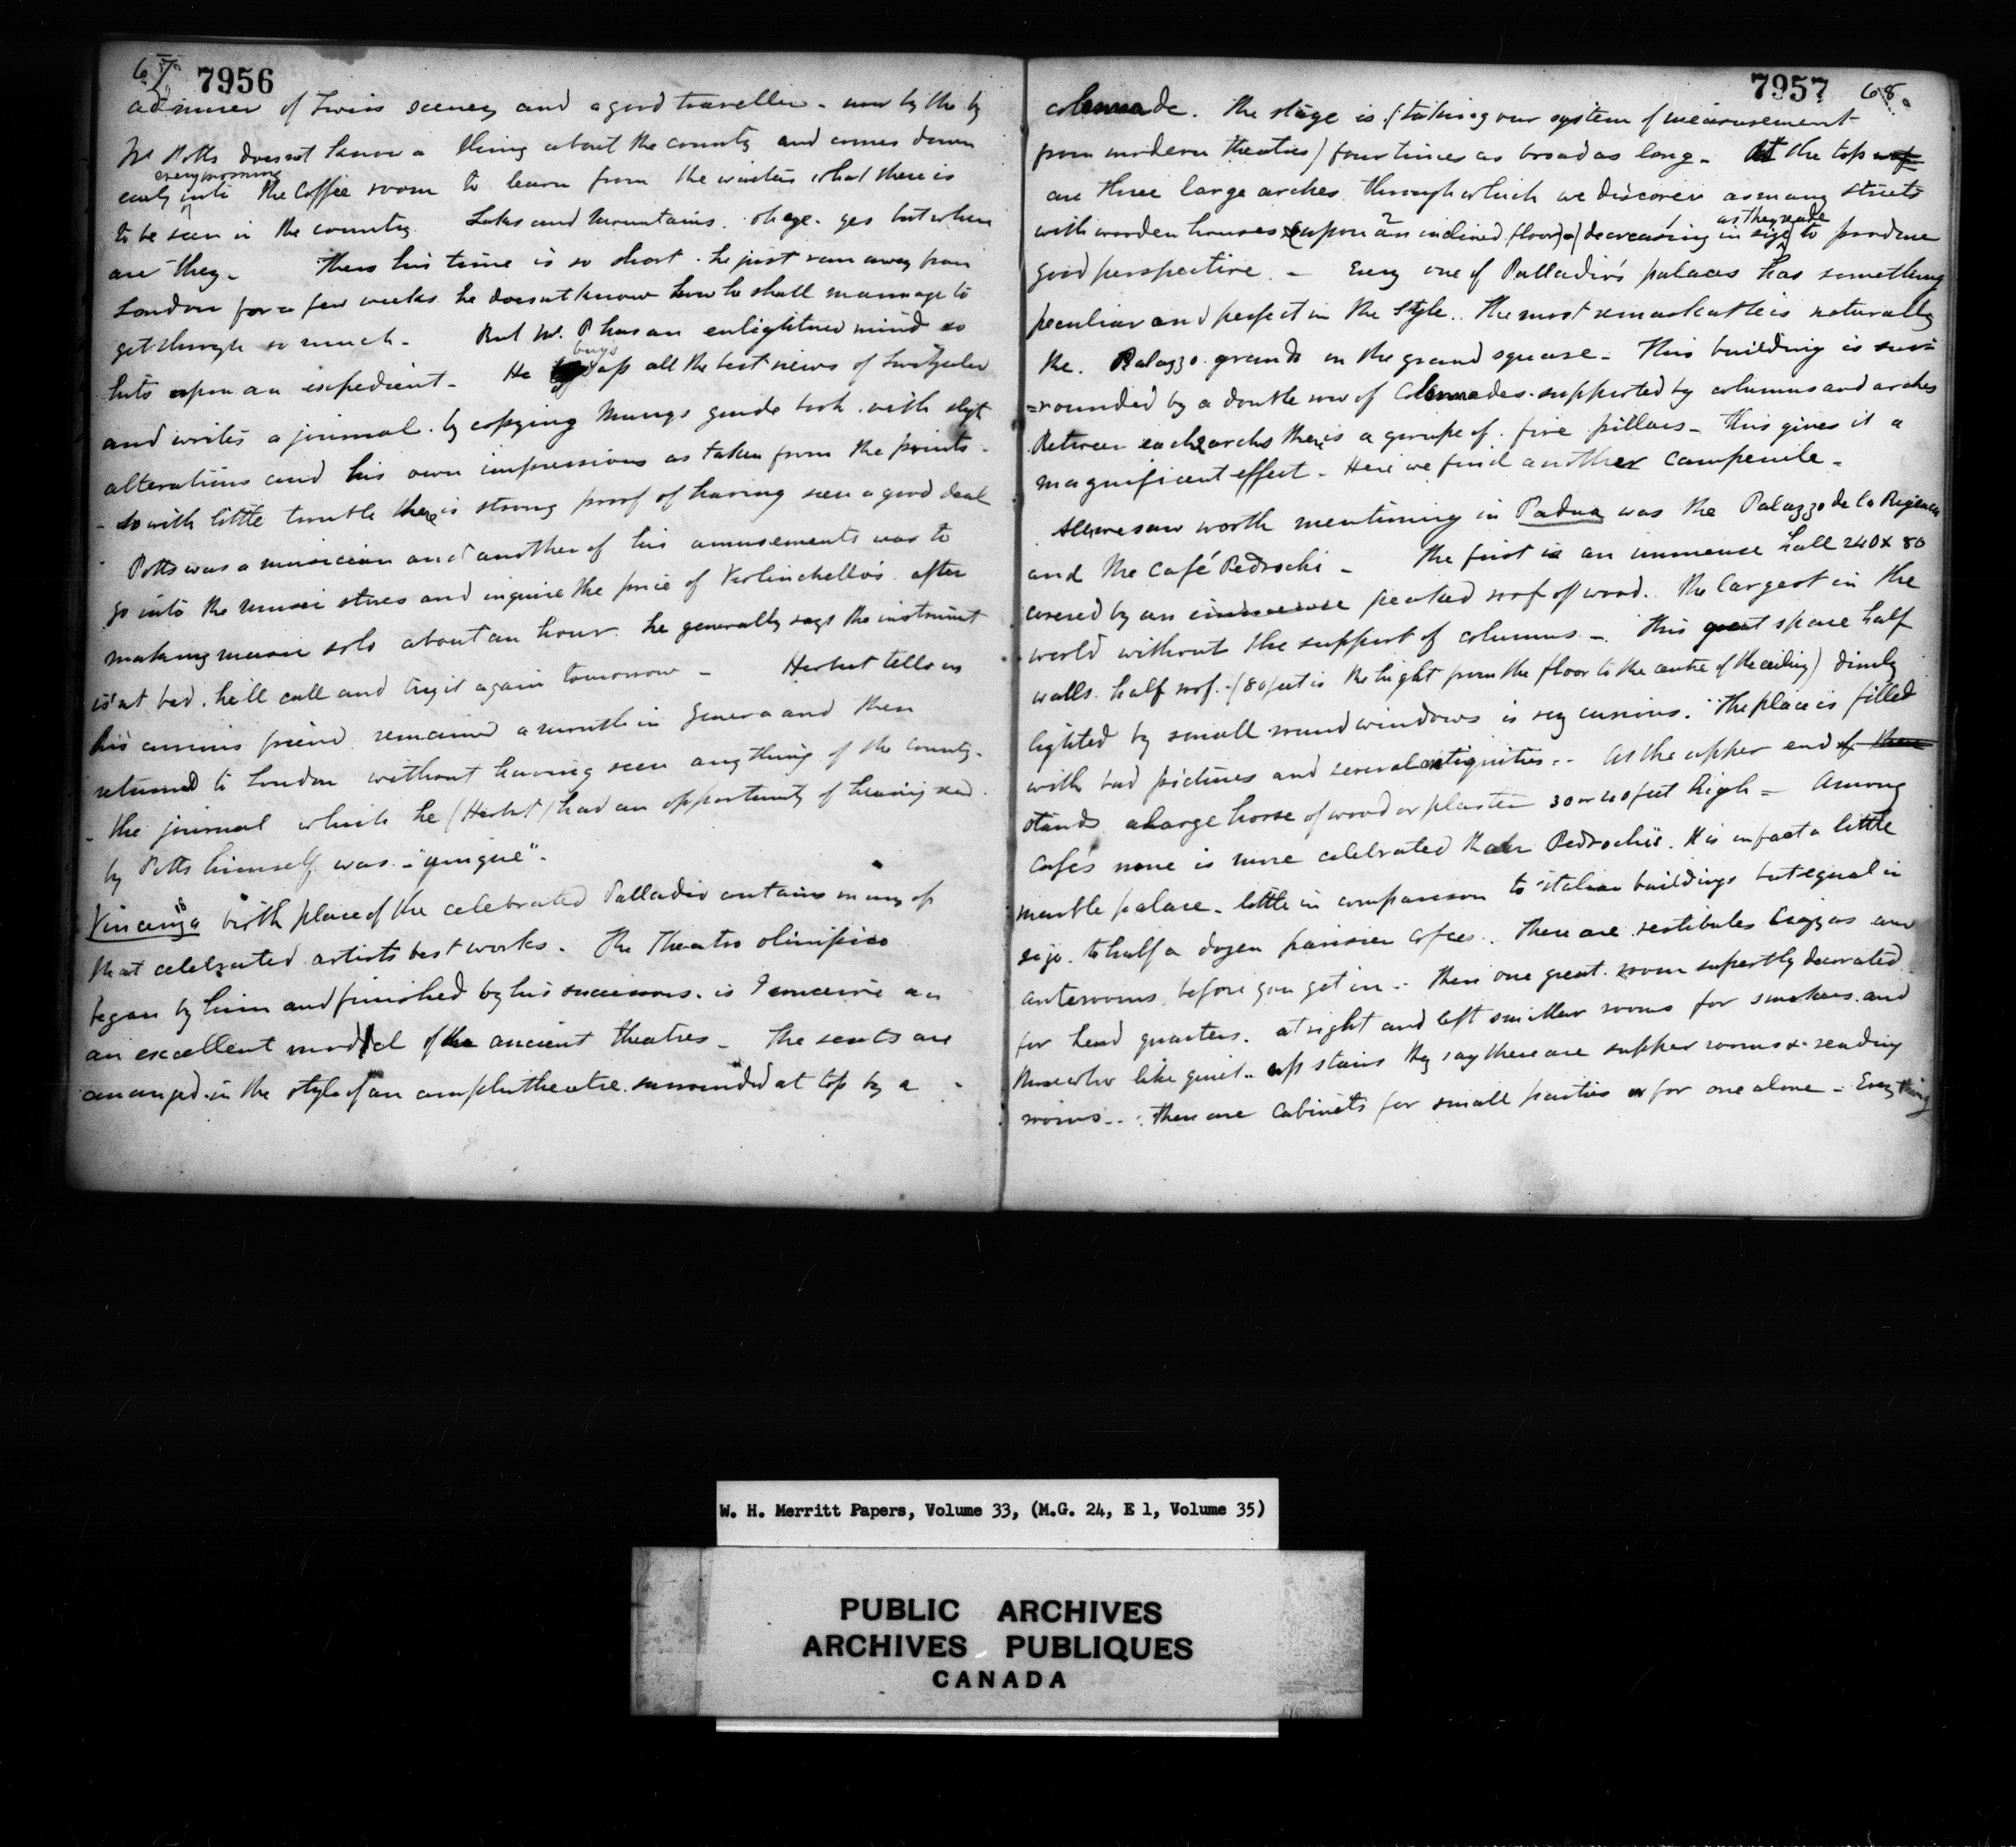 67. 7956
admirer of Swiss scenery and a good traveller - now by the by
Mr Potts does not know a thing about the country and comes down
every morning
early into the Coffee room to learn from the waiters what there is
to be seen in the country. Lakes and Mountains. oh aye. yes but where
are they - Then his time is so short. he just ran away from
London for a few weeks he doesnt know how he shall mannage to
get through so much - But Mr. P has an enlightened mind so
hits upon an expedient - He buys up all the best views of
and writes a journal. by copying guide book. with
alterations and his own impressions as taken from the prints -
- so with little trouble there is strong proof of having seen a good deal
Potts was a musician and another of his amusements was to
go into the music stores and inquire the price of Violinchello's. after
making music solo about an hour. he generally says the instrument
isnt bad. he'll call and try it again tomorrow - Herbert tells us
his curious friend remained a month in Geneva and then
returned to London without having seen anything of the country -
- The journal which he (Herbert) had an opportunity of hearing read
by Potts himself was - "unique" -
Vincenza birth place of the celebrated Palladio contains many of
that celebrated artists best works. The Theatro olimpico
began by him and finished by his successors. is I conceive an
an excellent model of the ancient theatres - The seats are
arranged in the style of an amphitheatre. surrounded at top by a
7957 68.
colonnade. The stage is (taking our system of measurement
from modern theatres) four times as broad as long - At the top of
are three large arches through which we discover as many streets
as they recede
with wooden houses (upon an inclined floor) - (decreasing in size to produce
good perspective. - Every one of Palladio's palaces has something
peculiar and perfect in the style. The most remarkable is naturally
the. Palazzo grands on the grand square - This building is sur=
=rounded by a double row of Colonnades. supported by columns and arches
Between each archs there is a groupe of. five pillars - This gives it a
magnificent effect - Here we find another Campenile -
All we saw worth mentioning in Padua was the Palazzo de la
and the Café Pedrochi - The first is an immense hall 240 x 80
covered by an immense peaked roof of wood. The largest in the
world without the support of columns - This great space half
walls. half roof. (80 feet is the hight from the floor to the centre of the ceiling) dimly
lighted by small round windows is very curious. The place is filled
with bad pictures and several antiquities.. At the upper end of them
stands a large horse of wood or plaster 30 or 40 feet high - Among
Cafés none is more celebrated than Pedrochi's. It is in fact a little
marble palace - little in comparison to italian buildings but equal in
size. to half a dozen parisien cafees.. There are vestibules and
anterooms before you get in.. Then one great room superbly decorated
for head quarters. at right and left smaller rooms for smokers. and
those who like quiet.. up stairs they say there are supper rooms & reading
rooms.. There are Cabinets for small parties or for one alone - Every thing
W. H. Merritt Papers, Volume 33, (M.G. 24, E 1, Volume 35)
PUBLIC ARCHIVES
ARCHIVES PUBLIQUES
CANADA